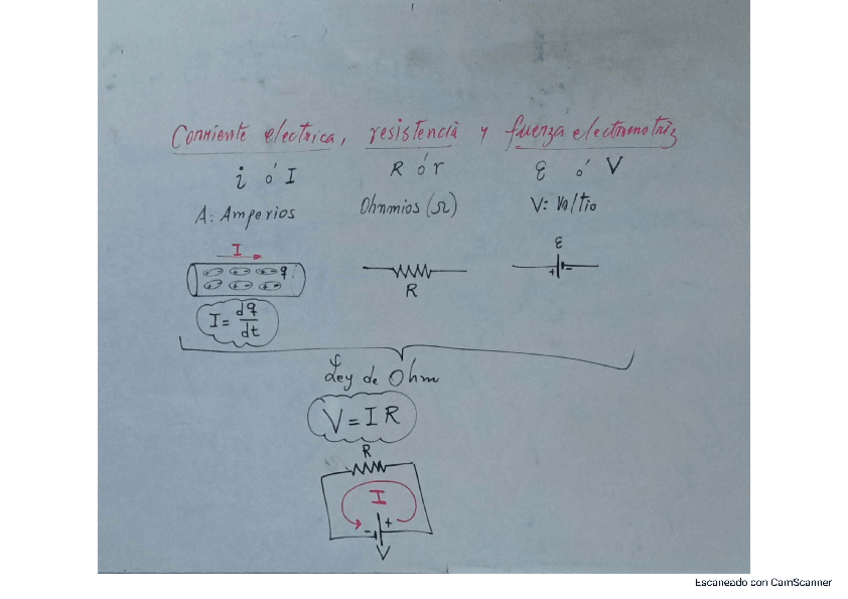 Corriente electrica, resistencia y fuerza electromotriz
i ó I
R ó r
ε ó V
A: Amperios
Ohnmios (Ω)
V: Voltio
I
q
R
ε
+ -
I = dq/dt
Ley de Ohm
V = I R
R
I
- +
V
Escaneado con CamScanner